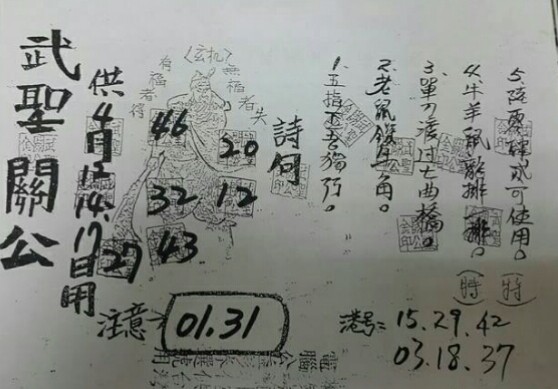 武聖關公
供4月12.14.17日用
〈玄机〉
有福者得
無福者失
46
20
32
12
43
27
詩句
1.五指下去猫行。
2.老鼠銜牛角。
3.單刀渡过七曲橋。
4.牛羊鼠龍排一排。
(特)
可使用。
(特)
注意
01.31
港号=15.29.42
03.18.37